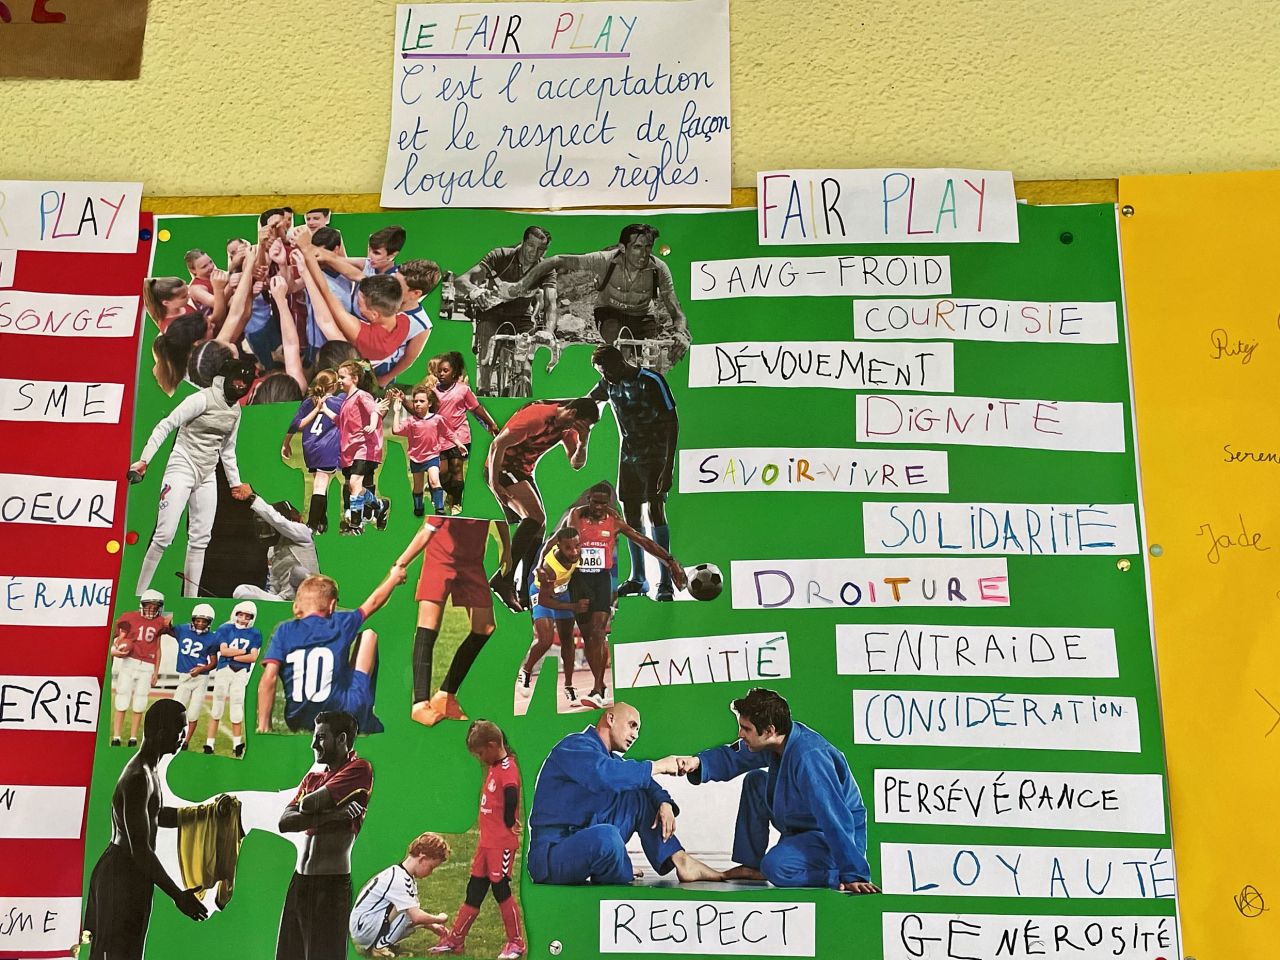 LE FAIR PLAY
C'est l'acceptation
et le respect de façon
loyale des règles.
PLAY
SONGE
SME
OEUR
ÉRANCE
ERiE
iSME
FAIR PLAY
SANG-FROiD
COURTOiSiE
DÉVOUEMENT
DiGNiTÉ
SAVOiR-ViVRE
SOLiDARiTÉ
DROITURE
AMiTiÉ
ENTRAiDE
CONSIDÉRATiON
PERSÉVÉRANCE
LOYAUTÉ
RESPECT
GÉNÉROSITÉ
4
10
16
32
47
Jade
Seren